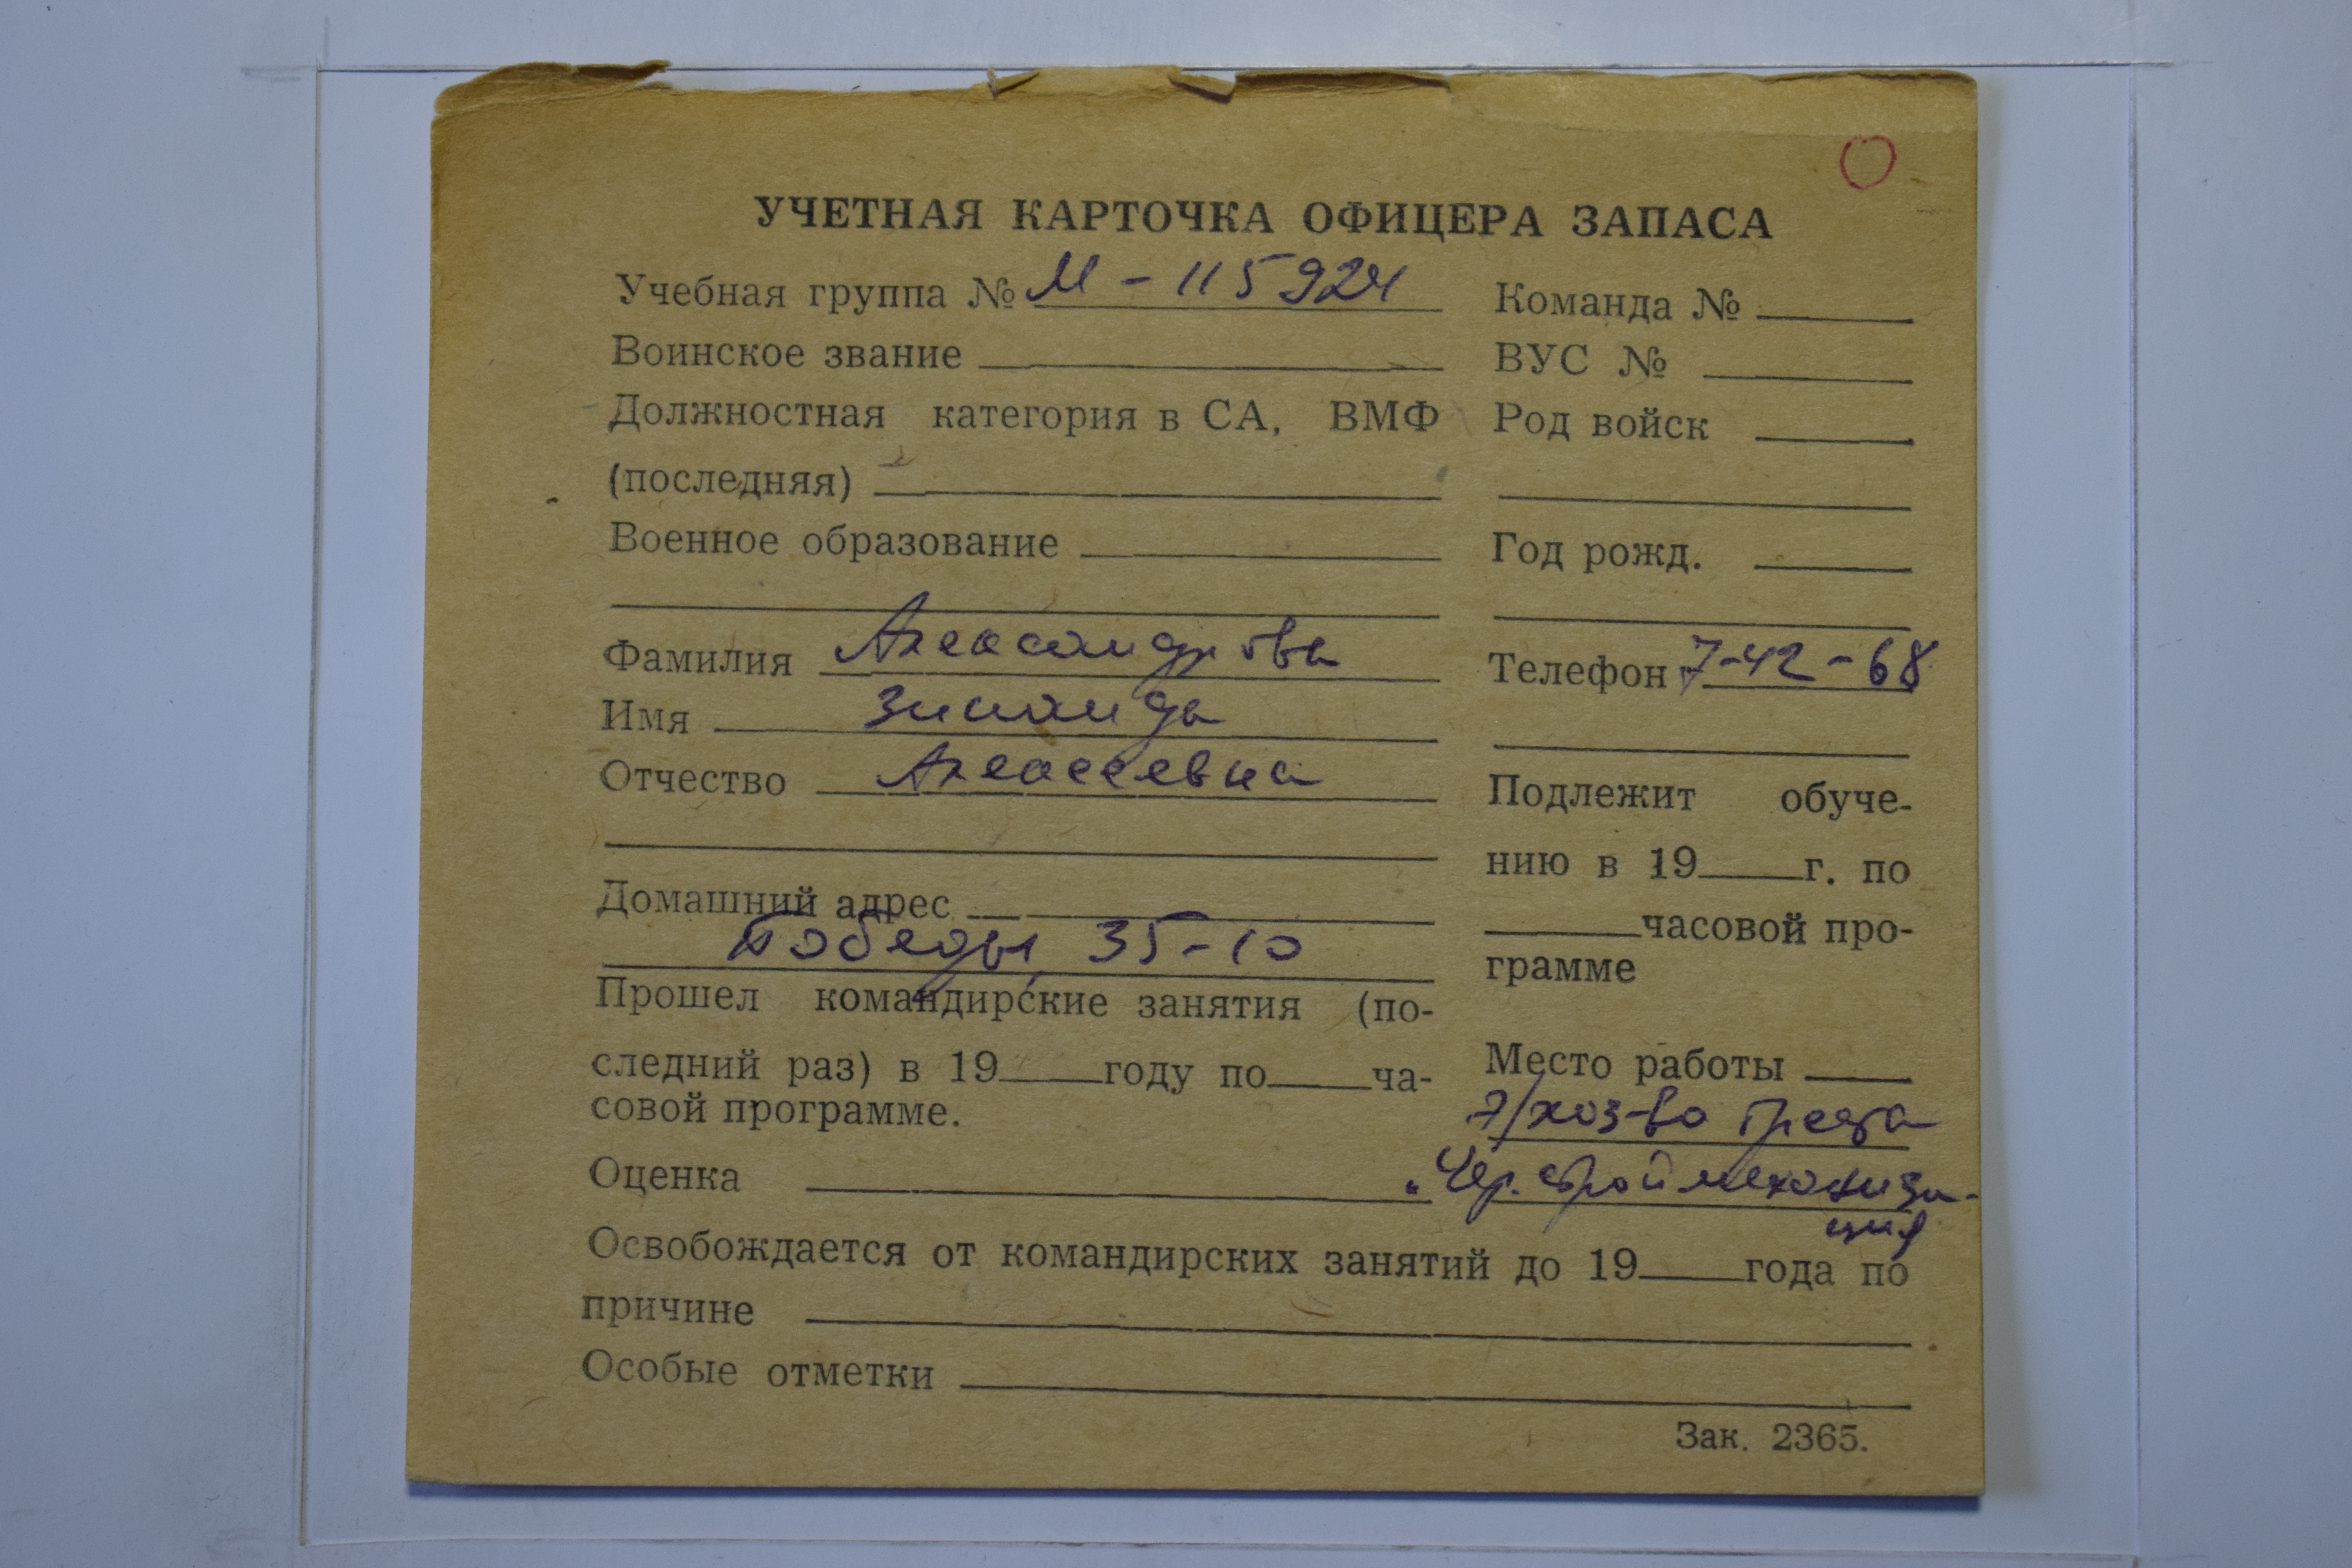 УЧЕТНАЯ КАРТОЧКА ОФИЦЕРА ЗАПАСА
Учебная группа № М - 115924
Воинское звание
Должностная категория в СА, ВМФ
(последняя)
Военное образование
Фамилия Александрова
Имя Зинаида
Отчество Алексеевна
Домашний адрес
Победы, 35-10
Прошел командирские занятия (по-
следний раз) в 19 году по ча-
совой программе.
Оценка
Команда №
ВУС №
Род войск
Год рожд.
Телефон 7-42-68
Подлежит обуче-
нию в 19 г. по
часовой про-
грамме
Место работы
/хоз-во треста
"Чер.строймеханиза-
ция
Освобождается от командирских занятий до 19 года по
причине
Особые отметки
Зак. 2365.